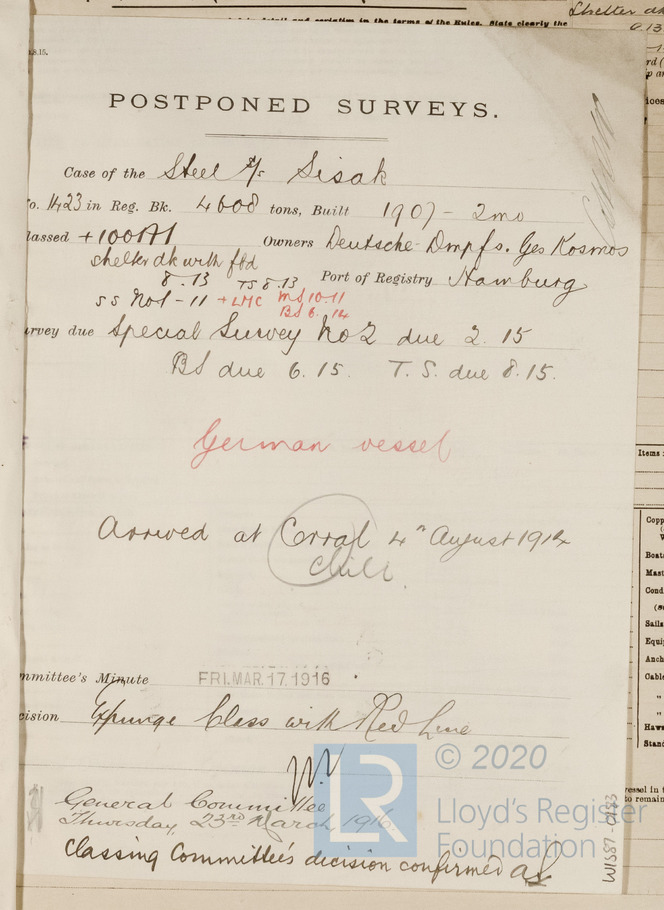 in detail and seriatim in the terms of the Rules. State clearly the
Shelter dk
0.13
.8.15.
POSTPONED SURVEYS.
Case of the Steel S/s Sisak
o. 1423 in Reg. Bk. 4608 tons, Built 1907 - 2mo
lassed +100A1 Owners Deutsche Dmpfs. Ges Kosmos
shelter dk with fbd
8.13 TS 8.13 Port of Registry Hamburg
SS No1 - 11 + LMC MS 10.11
BS 6.14
urvey due Special Survey No 2 due 2.15
BS due 6.15. T.S. due 8.15.
German vessel
Arrived at Corral 4th August 1914
Chili
mmittee's Minute FRI. MAR. 17. 1916
cision Expunge Class with Red Line
General Committee
Thursday, 23rd March, 1916
Classing Committee's decision confirmed
LR
© 2020
Lloyd's Register
Foundation
W1587-0153
Items
Copp
Boats
Mast
Cond
Sails
Equi
Anch
Cable
"
"
Haws
Stand
essel in
to remain